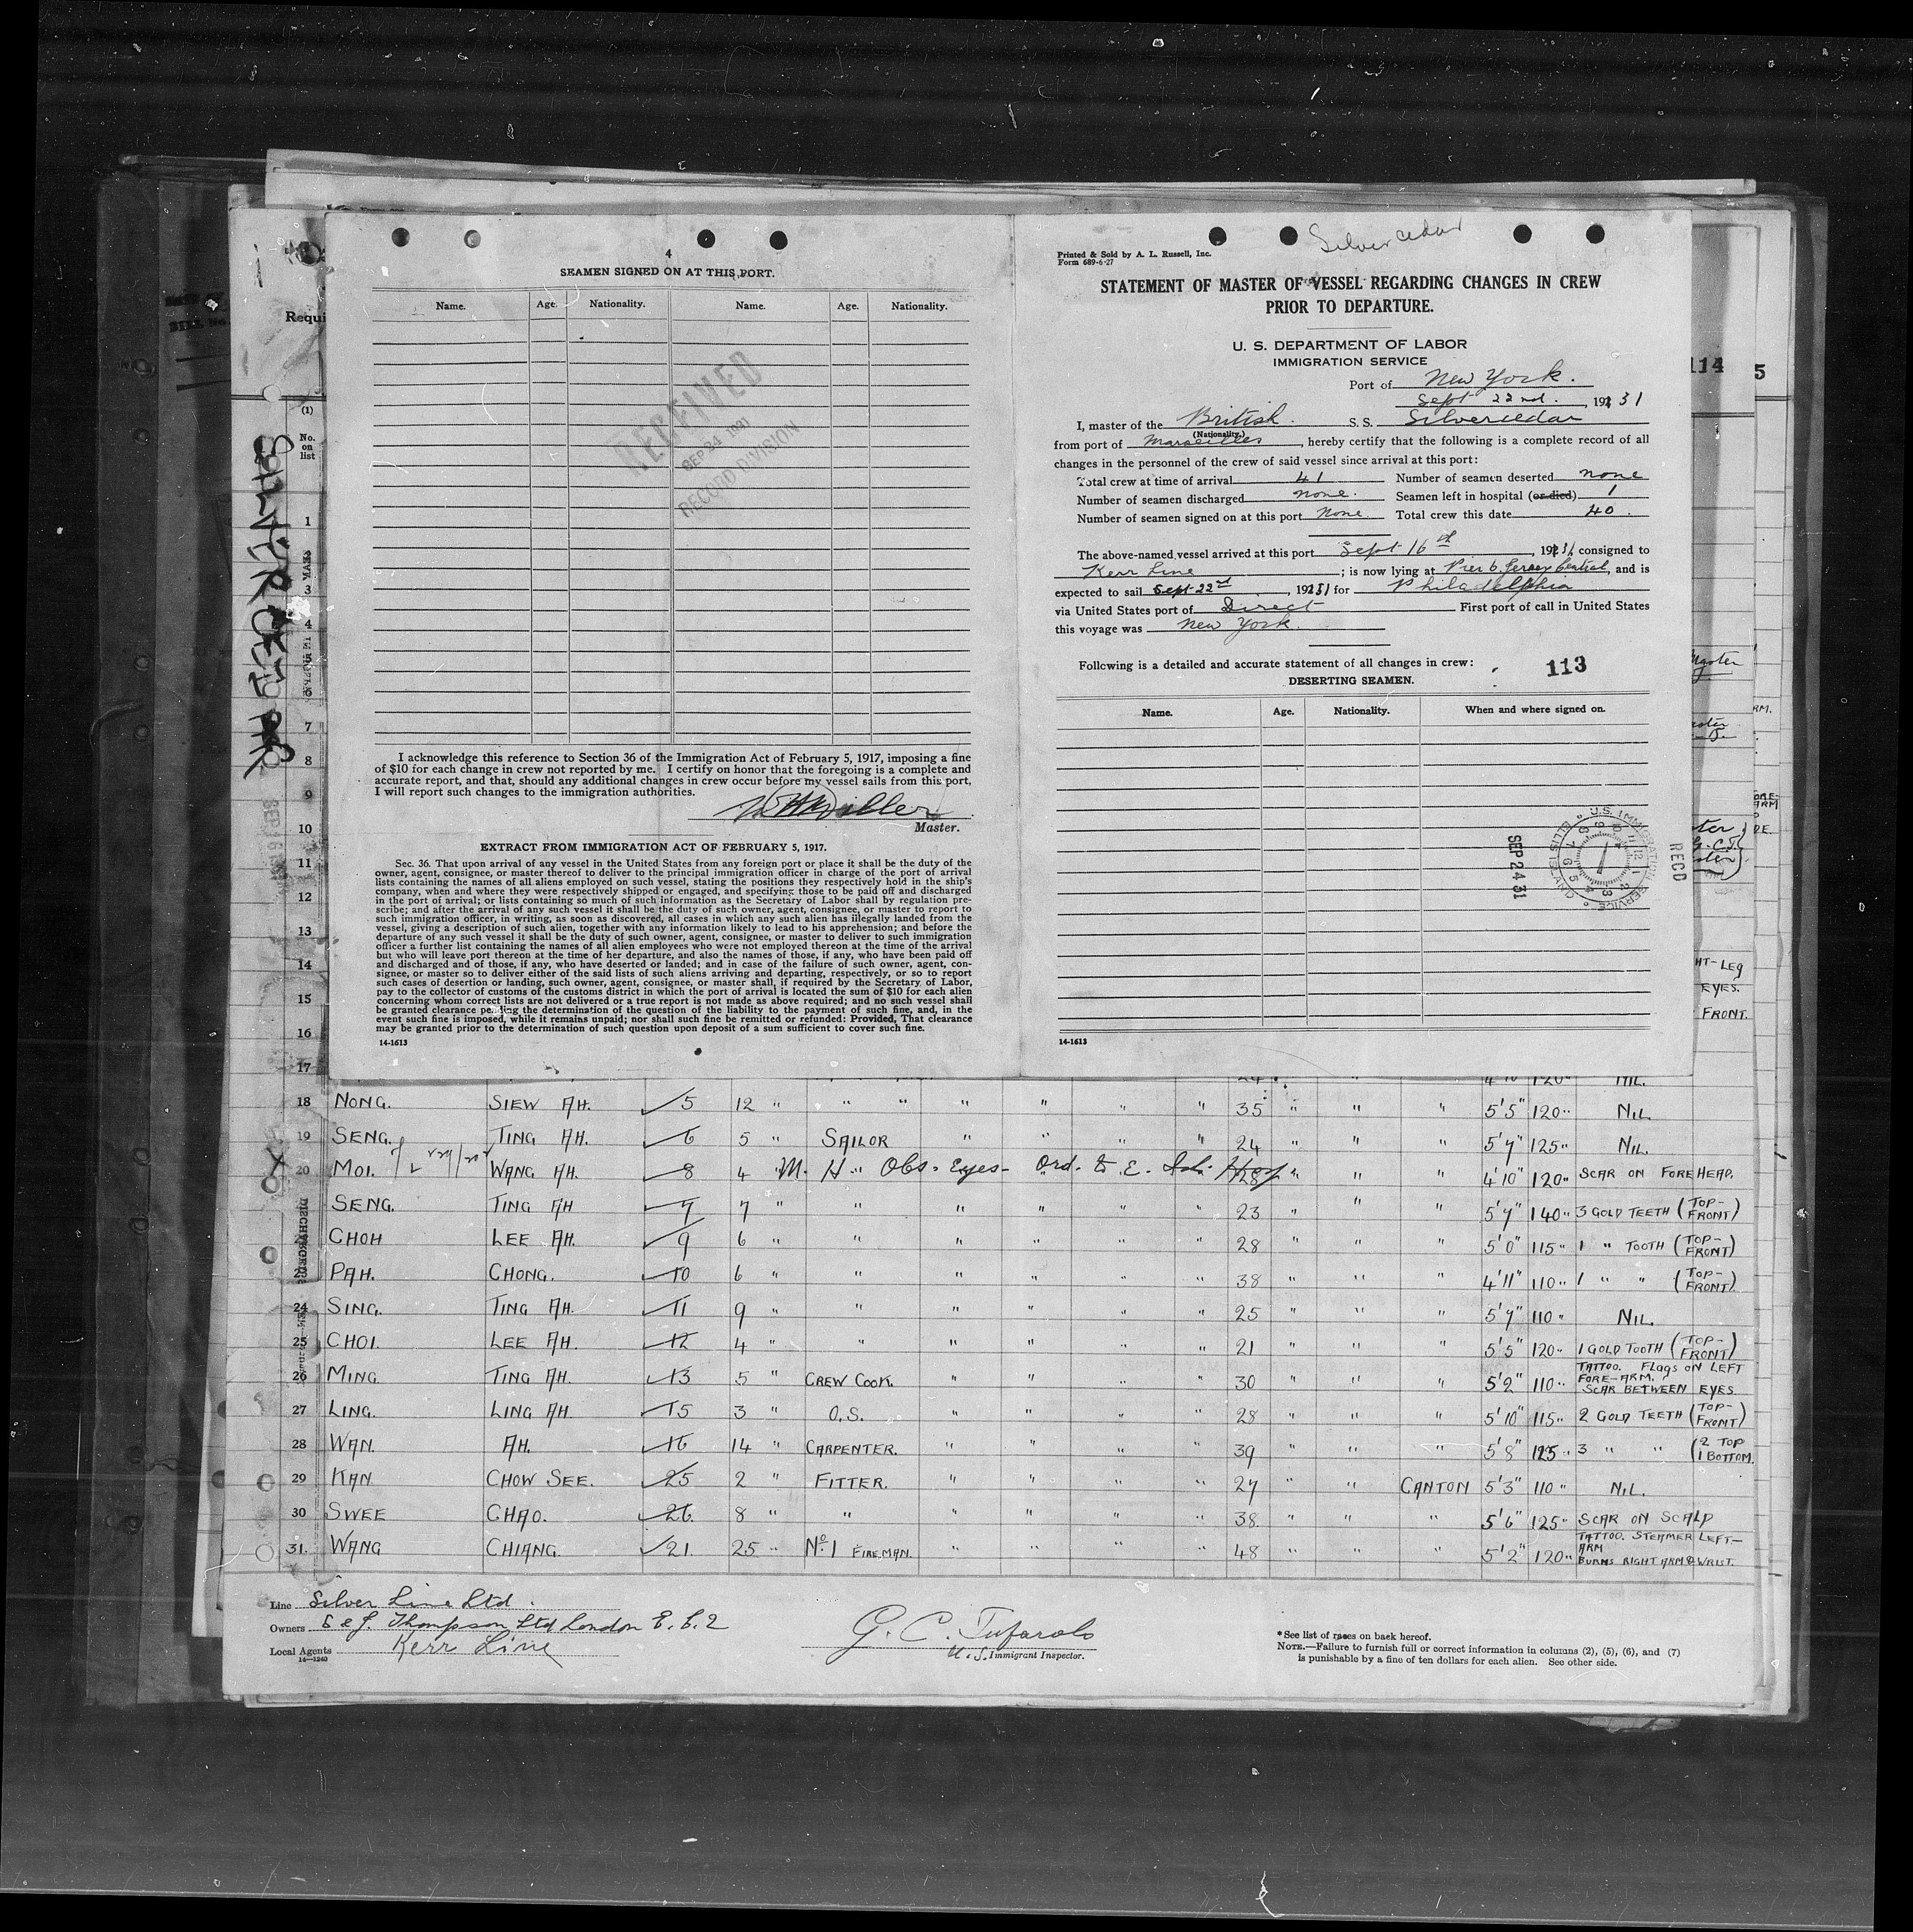 4
SEAMEN SIGNED ON AT THIS PORT.
Name. Age. Nationality. Name. Age. Nationality.
RECEIVED
SEP 24 1931
RECORD DIVISION
I acknowledge this reference to Section 36 of the Immigration Act of February 5, 1917, imposing a fine
of $10 for each change in crew not reported by me. I certify on honor that the foregoing is a complete and
accurate report, and that, should any additional changes in crew occur before my vessel sails from this port,
I will report such changes to the immigration authorities.
Master.
EXTRACT FROM IMMIGRATION ACT OF FEBRUARY 5, 1917.
Sec. 36. That upon arrival of any vessel in the United States from any foreign port or place it shall be the duty of the
owner, agent, consignee, or master thereof to deliver to the principal immigration officer in charge of the port of arrival
lists containing the names of all aliens employed on such vessel, stating the positions they respectively hold in the ship's
company, when and where they were respectively shipped or engaged, and specifying those to be paid off and discharged
in the port of arrival; or lists containing so much of such information as the Secretary of Labor shall by regulation pre-
scribe; and after the arrival of any such vessel it shall be the duty of such owner, agent, consignee, or master to report to
such immigration officer, in writing, as soon as discovered, all cases in which any such alien has illegally landed from the
vessel, giving a description of such alien, together with any information likely to lead to his apprehension; and before the
departure of any such vessel it shall be the duty of such owner, agent, consignee, or master to deliver to such immigration
officer a further list containing the names of all alien employees who were not employed thereon at the time of the arrival
but who will leave port thereon at the time of her departure, and also the names of those, if any, who have been paid off
and discharged and of those, if any, who have deserted or landed; and in case of the failure of such owner, agent, con-
signee, or master so to deliver either of the said lists of such aliens arriving and departing, respectively, or so to report
such cases of desertion or landing, such owner, agent, consignee, or master shall, if required by the Secretary of Labor,
pay to the collector of customs of the customs district in which the port of arrival is located the sum of $10 for each alien
concerning whom correct lists are not delivered or a true report is not made as above required; and no such vessel shall
be granted clearance pending the determination of the question of the liability to the payment of such fine, and, in the
event such fine is imposed, while it remains unpaid; nor shall such fine be remitted or refunded: Provided, That clearance
may be granted prior to the determination of such question upon deposit of a sum sufficient to cover such fine.
14-1613
Silvercedar
Printed & Sold by A. L. Russell, Inc.
Form 689-6-27
STATEMENT OF MASTER OF VESSEL REGARDING CHANGES IN CREW
PRIOR TO DEPARTURE.
U. S. DEPARTMENT OF LABOR
IMMIGRATION SERVICE
Port of New York.
Sept 22nd., 1931
I, master of the British. S. S. Silvercedar
(Nationality.)
from port of Marseilles, hereby certify that the following is a complete record of all
changes in the personnel of the crew of said vessel since arrival at this port:
Total crew at time of arrival 41 Number of seamen deserted none
Number of seamen discharged none. Seamen left in hospital (or died) 1
Number of seamen signed on at this port None Total crew this date 40.
The above-named vessel arrived at this port Sept 16th, 1931, consigned to
Kerr Line; is now lying at Pier 6 Jersey Central, and is
expected to sail Sept 22nd, 1931 for Philadelphia
via United States port of Direct First port of call in United States
this voyage was New York.
Following is a detailed and accurate statement of all changes in crew:
113
DESERTING SEAMEN.
Name. Age. Nationality. When and where signed on.
SEP 24 31
U.S. IMMIGRATION SERVICE ELLIS ISLAND
RECD
14-1613
114 5
Requi
(1)
No.
on
list
SILVERCEDAR
1
3
4
7
8
9
10
11
12
13
14
15
16
17
HT-LEG
EYES.
FRONT.
18 NONG. SIEW AH. 5 12 " " " " " " " 35 " " " 5'5" 120" NIL.
19 SENG. TING AH. 6 5 " SAILOR " " " " 24 " " " 5'7" 125" NIL.
20 MOI. WANG AH. 8 4 " M. H. Obs. Eyes- Ord. to E. Isl. Hosp 28 " " " 4'10" 120" SCAR ON FOREHEAD.
SENG. TING AH 7 7 " " " " " " 23 " " " 5'7" 140" 3 GOLD TEETH (TOP-FRONT)
CHOH LEE AH. 9 6 " " " " " " 28 " " " 5'0" 115" 1 " TOOTH (TOP-FRONT)
PAH. CHONG. 10 6 " " " " " " 38 " " " 4'11" 110" 1 " " (TOP-FRONT)
24 SING. TING AH. 11 9 " " " " " " 25 " " " 5'7" 110" NIL.
25 CHOI. LEE AH. 12 4 " " " " " " 21 " " " 5'5" 120" 1 GOLD TOOTH (TOP-FRONT)
26 MING. TING AH. 13 5 " CREW COOK. " " " " 30 " " " 5'2" 110" TATTOO. FLAGS ON LEFT FORE-ARM. SCAR BETWEEN EYES
27 LING. LING AH. 15 3 " O.S. " " " " 28 " " " 5'10" 115" 2 GOLD TEETH (TOP-FRONT)
28 WAN. AH. 16 14 " CARPENTER. " " " " 39 " " " 5'8" 125" 3 " " (2 TOP 1 BOTTOM.
29 KAN. CHOW SEE. 25 2 " FITTER. " " " " 27 " " CANTON 5'3" 110" NIL.
30 SWEE CHAO. 26. 8 " " " " " " 38. " " " 5'6" 125" SCAR ON SCALP
31. WANG CHIANG. 21. 25 " No. 1 FIREMAN. " " " " 48 " " " 5'2" 120" TATTOO. STEAMER LEFT-ARM BURNS RIGHT ARM & WRIST.
Line Silver Line Ltd.
Owners S & J. Thompson Ltd London E.C.2
Local Agents Kerr Line
14-1240
G. C. Tufarolo
U. S. Immigrant Inspector.
*See list of races on back hereof.
NOTE.—Failure to furnish full or correct information in columns (2), (5), (6), and (7)
is punishable by a fine of ten dollars for each alien. See other side.